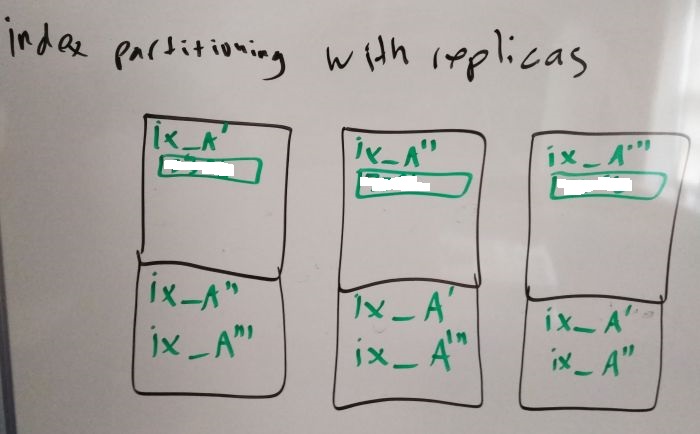 index partitioning with replicas
ix_A'
ix_A"
ix_A"'
ix_A"
ix_A"'
ix_A'
ix_A"'
ix_A'
ix_A"